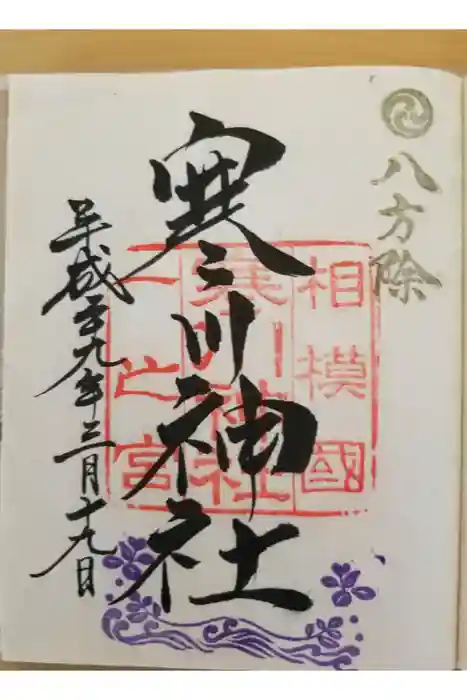 八方除
寒川神社
相模國
寒川神社
一之宮
平成二十九年三月十九日